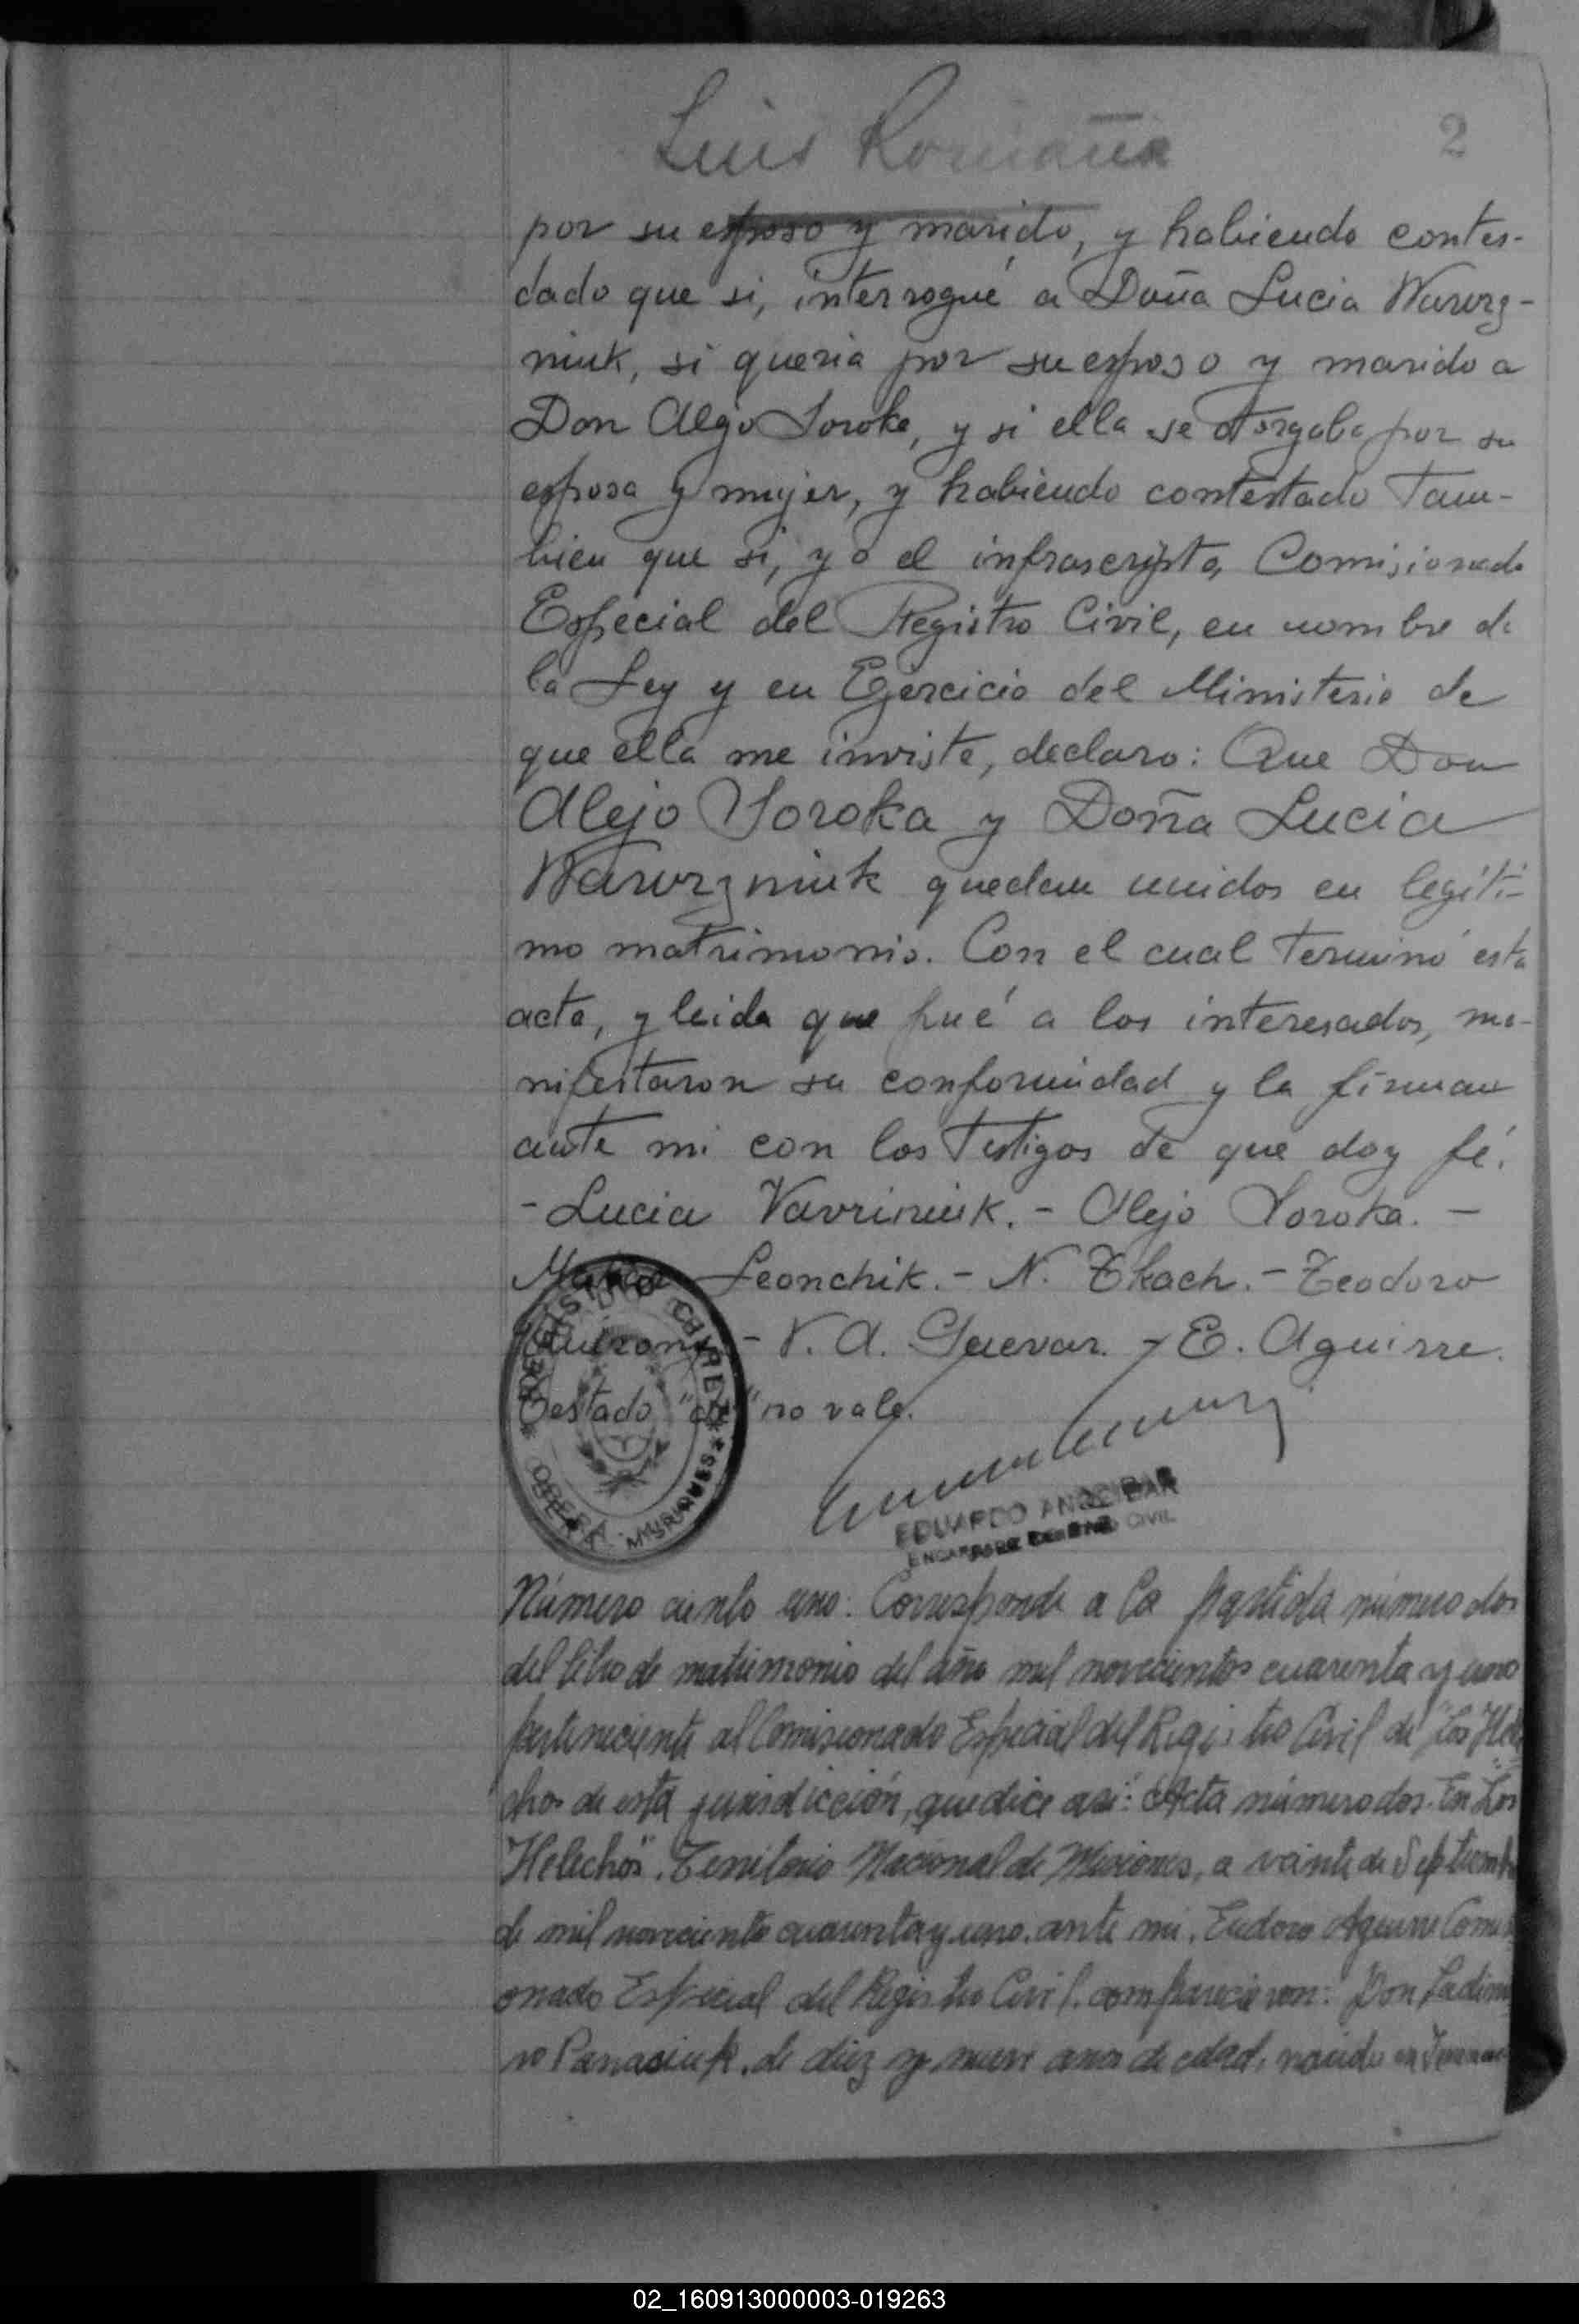 Luis Romaña
2
por su esposo y marido, y habiendo contes-
dado que si, interrogué a Doña Lucia Wawrz-
niuk, si queria por su esposo y marido a
Don Alejo Soroka, y si ella se otorgaba por su
esposa y mujer, y habiendo contestado tam-
bien que si, yo el infrascripto, Comisionado
Especial del Registro Civil, en nombre de
la Ley y en Ejercicio del Ministerio de
que ella me inviste, declaro: Que Don
Alejo Soroka y Doña Lucia
Wawrzniuk quedan unidos en legíti-
mo matrimonio. Con el cual terminó esta
acta, y leida que fué a los interesados, ma-
nifestaron su conformidad y la firman
ante mi con los testigos de que doy fé.
- Lucia Vavriniuk. - Alejo Soroka. -
Leonchik. - N. Tkach. - Teodoro
- V. A. Guevar. - E. Aguirre.
Testado "de" no vale.
REGISTRO CIVIL
OBERA - MISIONES
EDUARDO ANOCIBAR
ENCARGADO REGISTRO CIVIL
Número ciento uno. Corresponde a la partida número dos
del libro de matrimonio del año mil novecientos cuarenta y uno
perteneciente al Comisionado Especial del Registro Civil de "Los Hele
chos de esta jurisdicción, que dice asi: Acta número dos. En "Los
Helechos". Territorio Nacional de Misiones, a veinte de Septiembre
de mil novecientos cuarenta y uno. ante mi. Eudoro Aguirre Comisi
onado Especial del Registro Civil. comparecieron: Don Ladimi
ro Panasiuk. de diez y nueve años de edad, nacido en
02_160913000003-019263